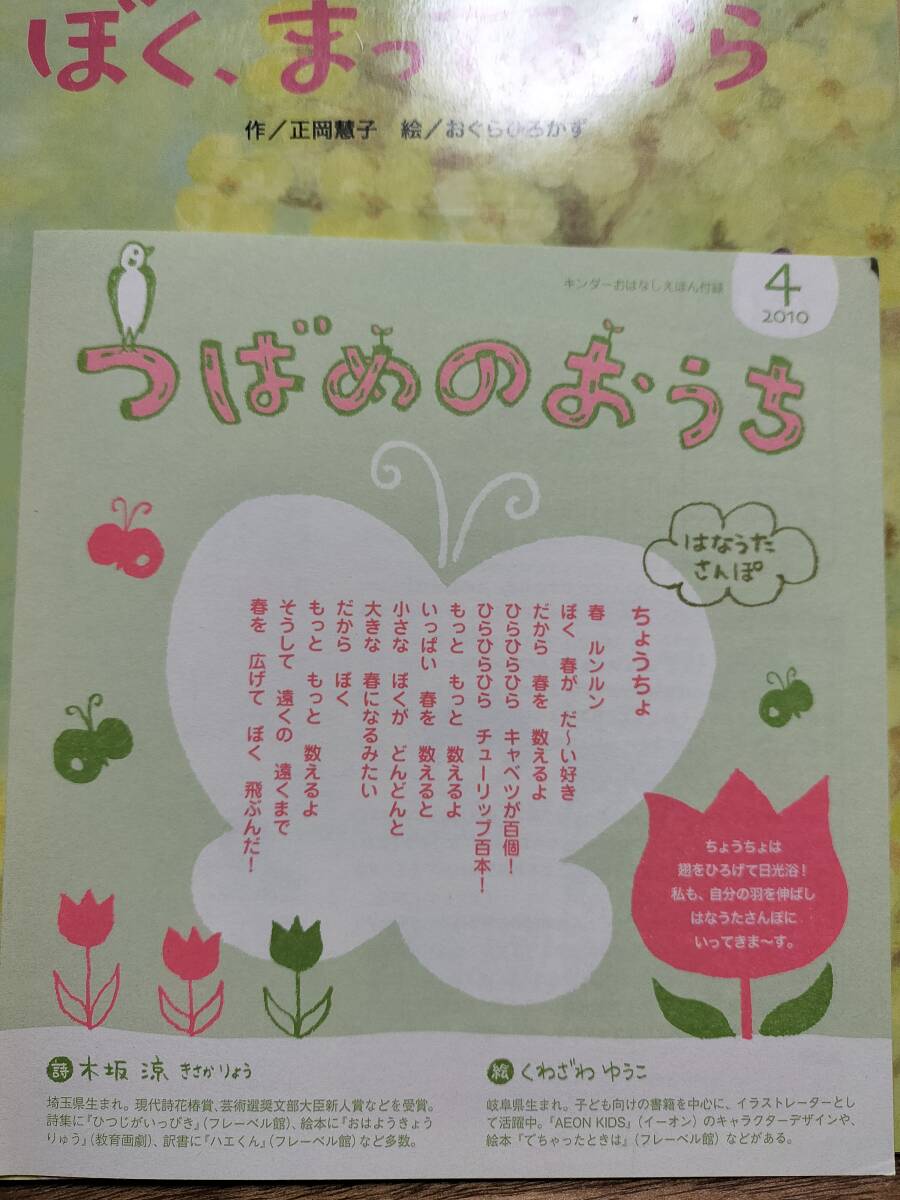 ぼく、まってるから
作／正岡慧子　絵／おぐらひろかず
キンダーおはなしえほん付録
4
2010
つばめのおうち
はなうた
さんぽ
ちょうちょ
春　ルンルン
ぼく　春が　だ〜い好き
だから　春を　数えるよ
ひらひらひら　キャベツが百個！
ひらひらひら　チューリップ百本！
もっと　もっと　数えるよ
いっぱい　春を　数えると
小さな　ぼくが　どんどんと
大きな　春になるみたい
だから　ぼく
もっと　もっと　数えるよ
そうして　遠くの　遠くまで
春を　広げて　ぼく　飛ぶんだ！
ちょうちょは
翅をひろげて日光浴！
私も、自分の羽を伸ばし
はなうたさんぽに
いってきま〜す。
詩 木坂 涼 きさか りょう
埼玉県生まれ。現代詩花椿賞、芸術選奨文部大臣新人賞などを受賞。
詩集に『ひつじがいっぴき』（フレーベル館）、絵本に『おはようきょう
りゅう』（教育画劇）、訳書に『ハエくん』（フレーベル館）など多数。
絵 くわざわ ゆうこ
岐阜県生まれ。子ども向けの書籍を中心に、イラストレーターとし
て活躍中。「AEON KIDS」（イーオン）のキャラクターデザインや、
絵本『でちゃったときは』（フレーベル館）などがある。